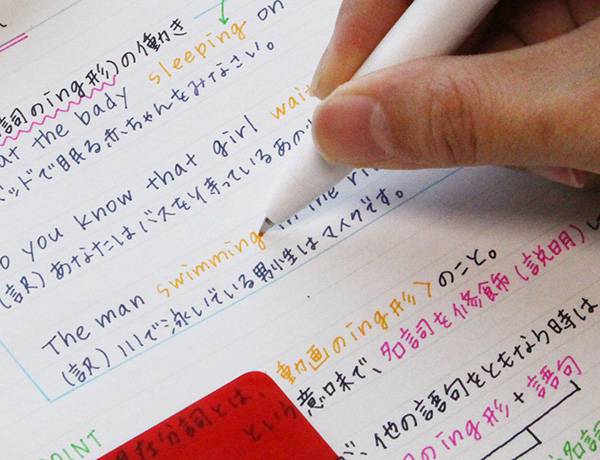 詞のing形)の働き
at the bady sleeping on
ッドで眠る赤ちゃんをみなさい。
o you know that girl wai
(訳)あなたはバスを待っているあの
The man swimming in the ri
(訳)川で泳いでいる男性はマイクです。
動画のing形〉のこと。
意味で、名詞を修飾(説明)し
在分詞とは、という
が、他の語句をともなり時は
のing形+語句
POINT
名詞